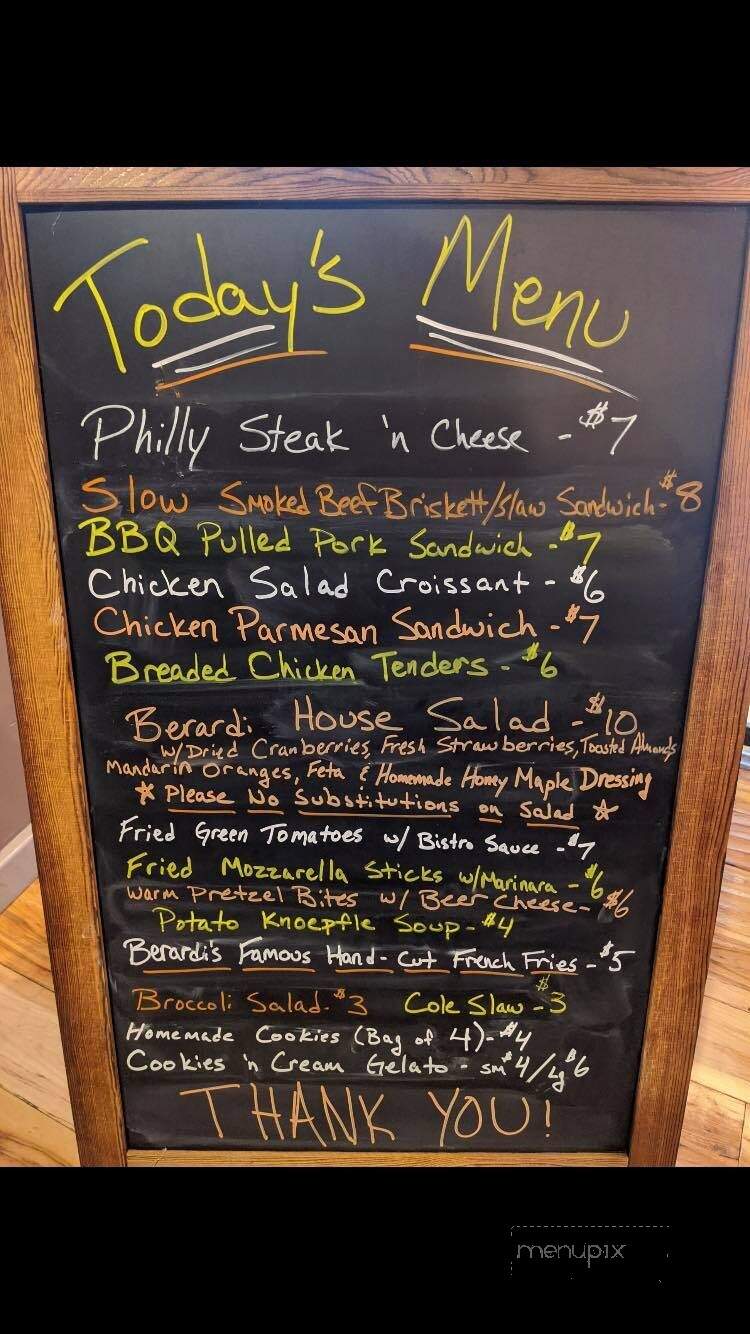 Today's Menu
Philly Steak 'n Cheese - $7
Slow Smoked Beef Briskett/Slaw Sandwich - $8
BBQ Pulled Pork Sandwich - $7
Chicken Salad Croissant - $6
Chicken Parmesan Sandwich - $7
Breaded Chicken Tenders - $6
Berardi House Salad - $10
w/ Dried Cranberries, Fresh Strawberries, Toasted Almonds
Mandarin Oranges, Feta & Homemade Honey Maple Dressing
* Please No Substitutions on Salad *
Fried Green Tomatoes w/ Bistro Sauce - $7
Fried Mozzarella Sticks w/ Marinara - $6
Warm Pretzel Bites w/ Beer Cheese - $6
Potato Knoepfle Soup - $4
Berardi's Famous Hand-Cut French Fries - $5
Broccoli Salad - $3 Cole Slaw - $3
Homemade Cookies (Bag of 4) - $4
Cookies 'n Cream Gelato - sm $4/lg $6
THANK YOU!
menupix